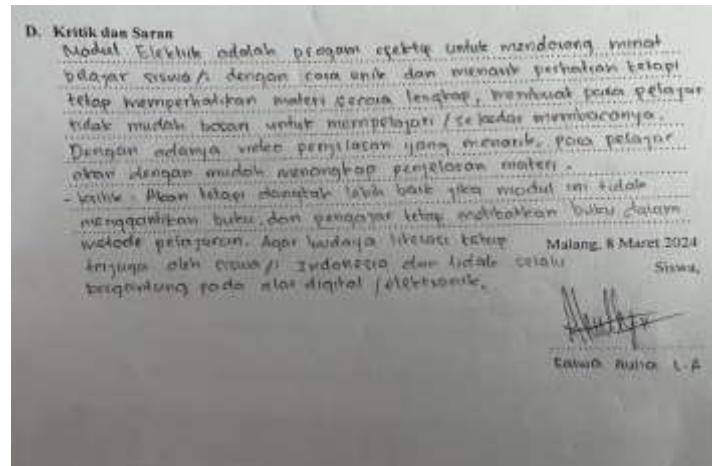 D. Kritik dan Saran
Modul Elektik adalah progam efektip untuk mendorong minat
belajar siswa/i dengan cara unik dan menarik perhatian tetapi
tetap memperhatikan materi secara lengkap, membuat para pelajar
tidak mudah bosan untuk mempelajari / sekedar membacanya.
Dengan adanya video penjelasan yang menarik, para pelajar
akan dengan mudah menangkap penjelasan materi.
- kritik : Akan tetapi lebih baik jika modul ini tidak
menggantikan buku, dan pengajar tetap melibatkan buku dalam
metode pelajaran. Agar budaya literasi tetap
terjaga oleh siswa/i Indonesia dan tidak selalu
bergantung pada alat digital / elektronik.
Malang, 8 Maret 2024
Siswa,
Aulia L.A